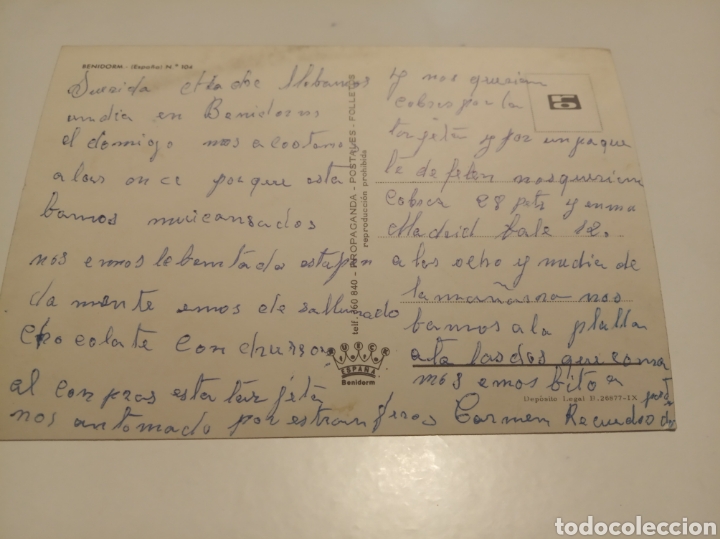 BENIDORM - (España) N.º 104
Querida Madre llebamos
un dia en Benidorm
el domigo nos acostamos
a las once porque esta
bamos mui cansados
nos emos lebantado estupen
da mente emos desallunado
chocolate con churros
al conpras esta targeta
nos an tomado por estrangeros
Y nos querian
cobras por la
targeta y por un paque
te de nos querian
cobras 28 pts y en
Madrid bale 12.
a las ocho y media de
la mañana nos
bamos a la plalla
a ta las dos que coma
mos emos bito a
Carmen Recuerdo
telf. 360 840 - PROPAGANDA - POSTALES - FOLLETOS
reproducción prohibida
ESPAÑA
Benidorm
Depósito Legal B. 26977-IX
todocoleccion